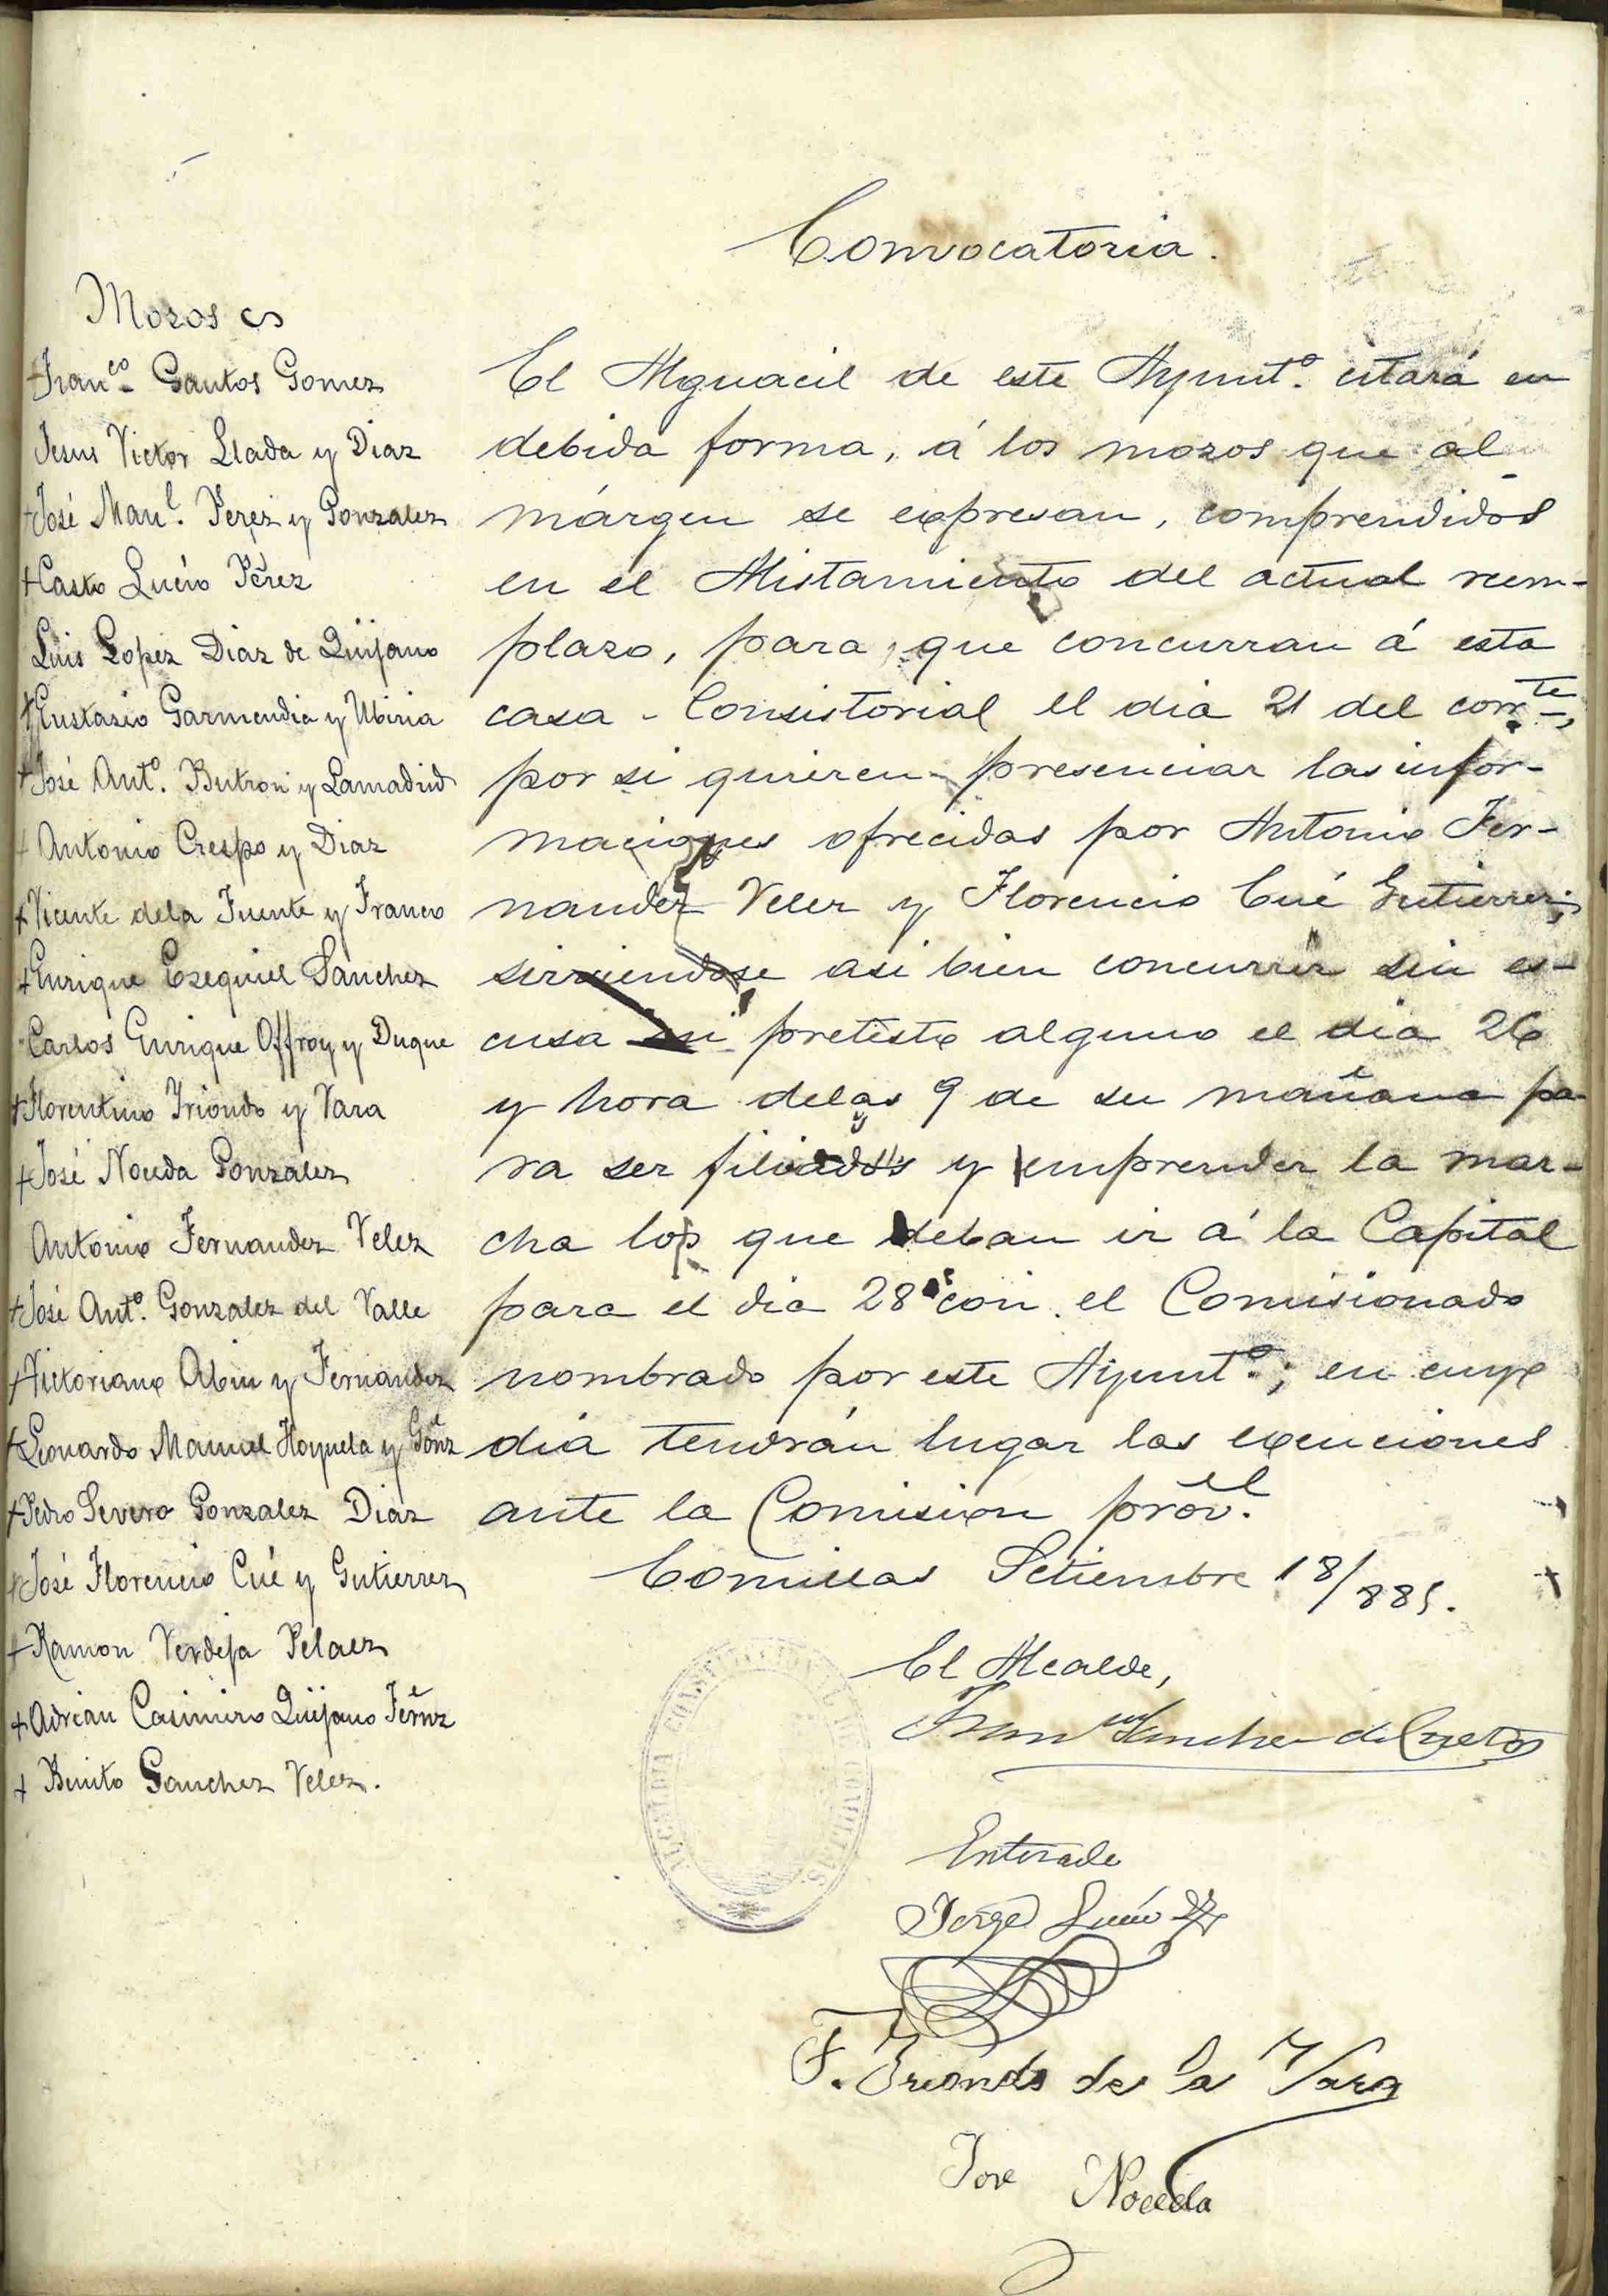 Convocatoria.
Mozos
+ Fran.co Santos Gomez
Jesus Victor Llada y Diaz
+ José Man.l Perez y Gonzalez
+ Casto Lucio Pérez
Luis Lopez Diaz de Quijano
+ Eustasio Garmendia y Ubiria
+ José Ant.o Butron y Lamadrid
+ Antonio Crespo y Diaz
+ Vicente dela Fuente y Franco
+ Enrique Ezequiel Sanchez
Carlos Enrique Offroy y Duque
+ Florentino Iriondo y Vara
+ José Noceda Gonzalez
Antonio Fernandez Velez
+ José Ant.o Gonzalez del Valle
+ Victoriano Abin y Fernandez
+ Leonardo Manuel Hoyuela y Gonz
+ Pedro Severo Gonzalez Diaz
+ José Florencio Cué y Gutierrez
+ Ramon Verdeja Pelaez
+ Adrian Casimiro Quijano Fernz
+ Benito Sanchez Velez.
El Alguacil de este Ayunt.o citará en
debida forma, á los mozos que al
márgen se expresan, comprendidos
en el Alistamiento del actual reem-
plazo, para que concurran á esta
casa - Consistorial el dia 21 del corr.te,
por si quieren presenciar las infor-
maciones ofrecidas por Antonio Fer-
nandez Velez y Florencio Cué Gutierrez;
sirviendose asi bien concurrir sin es-
cusa ni pretesto alguno el dia 26
y hora delas 9 de su mañana pa-
ra ser filiados y emprender la mar-
cha los que deban ir á la Capital
para el dia 28 con el Comisionado
nombrado por este Ayunt.o; en cuyo
dia tendrán lugar las exenciones
ante la Comision prov.el
Comillas Setiembre 18/885.
El Alcalde,
Fran.co Sanchez de Cueto
ALCALDIA CONSTITUCIONAL DE COMILLAS
Enterado
Jorge Lucio
F. Iriondo de la Vara
Jose Noceda